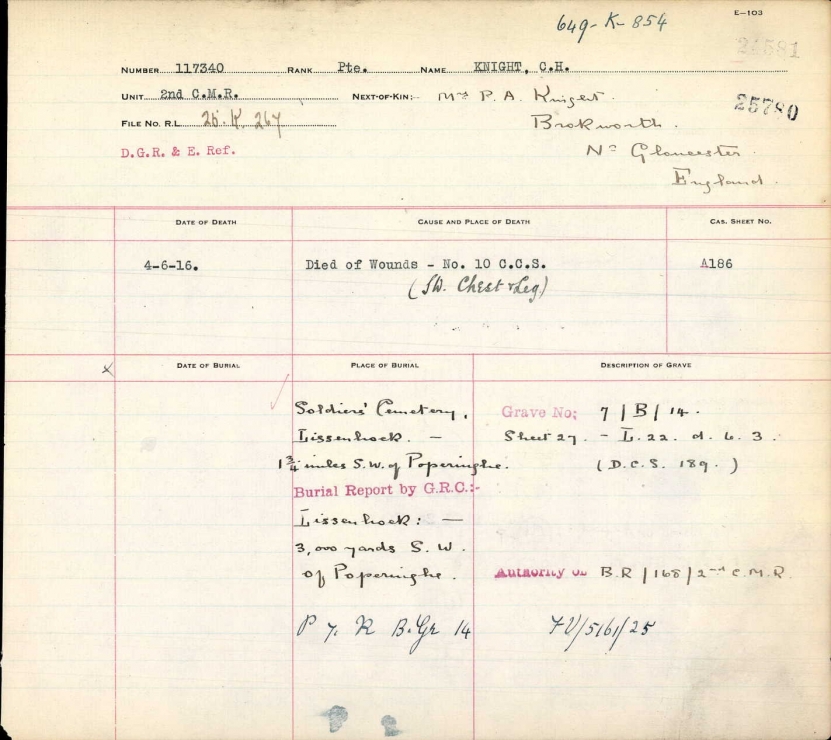 E-103
649-K-854
24581
NUMBER 117340 RANK Pte. NAME KNIGHT, C.H.
UNIT 2nd C.M.R. NEXT-OF-KIN:- Mrs P. A. Knight.
25780
FILE No. R.L. 25. K. 267
Brokworth.
D.G.R. & E. Ref.
Nr Gloucester
England.
DATE OF DEATH CAUSE AND PLACE OF DEATH CAS. SHEET No.
4-6-16. Died of Wounds - No. 10 C.C.S. A186
(SW. Chest & Leg)
x DATE OF BURIAL PLACE OF BURIAL DESCRIPTION OF GRAVE
Soldiers' Cemetery, Grave No: 7 / B / 14.
Lissenhock. - Sheet 27. - L. 22. d. 6. 3.
1 3/4 miles S.W. of Poperinghe. (D.C.S. 189.)
Burial Report by G.R.C.:-
Lissenhock: -
3,000 yards S. W.
of Poperinghe. Authority B.R / 168 / 2nd C.M.R
P 7. R B. Gr 14 /5161/25